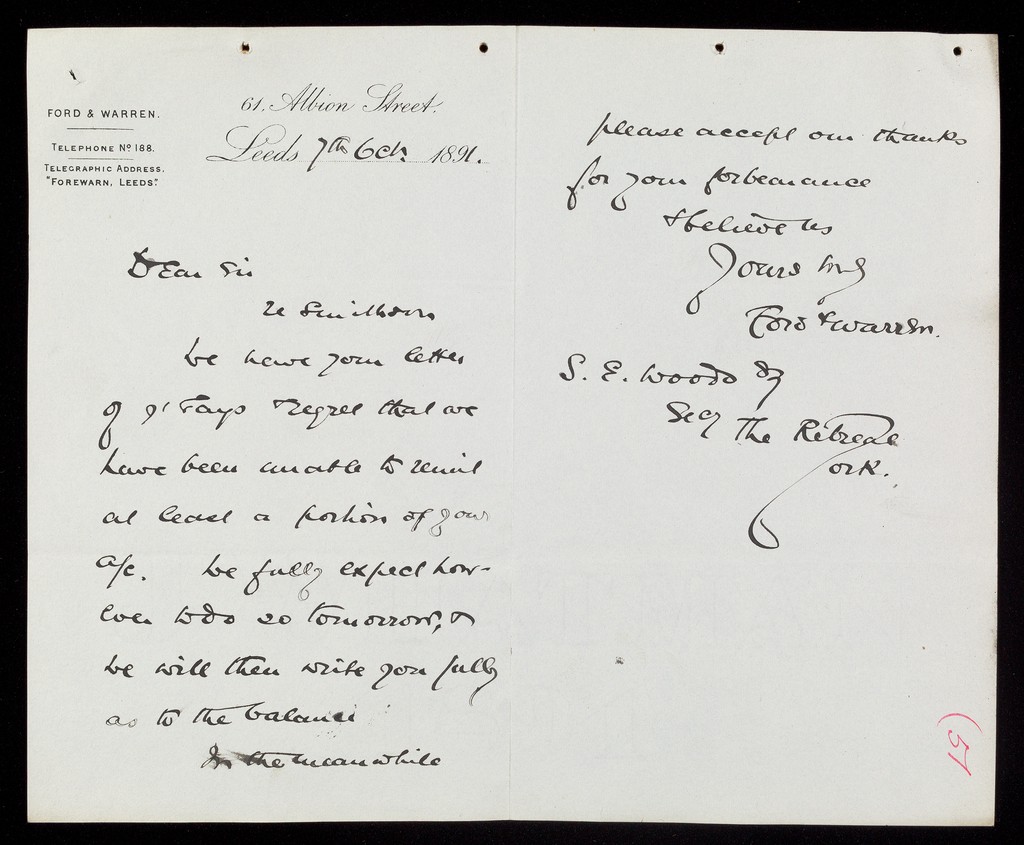 FORD & WARREN.
TELEPHONE Nº 188.
TELEGRAPHIC ADDRESS.
"FOREWARN, LEEDS."
61, Albion Street,
Leeds 7th Oct. 1891.
Dear Sir
re Smithson
We have your letter
of yrs & regret that we
have been unable to remit
at least a portion of your
a/c. We fully expect how-
ever to do so tomorrow, &
we will then write you fully
as to the balance
In the meanwhile
please accept our thanks
for your forbearance
& believe us
Yours truly
Ford & Warren.
S. E. Woods Esq
Secy The Retreat
York.
(57